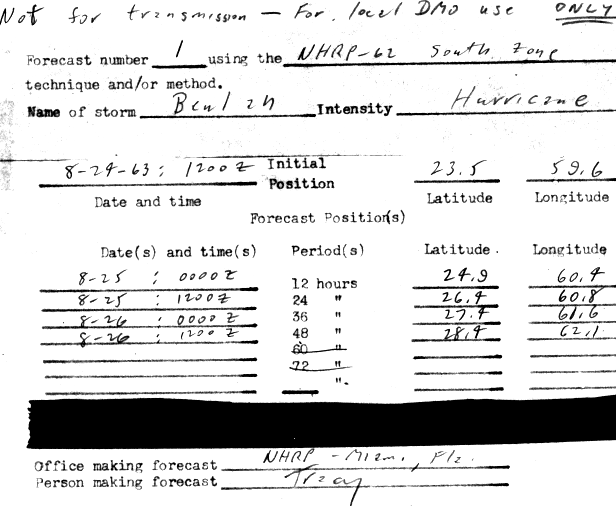 Not for transmission — For local DMO use ONLY
Forecast number 1 using the NHRP-62 South Zone
technique and/or method.
Name of storm Beulah Intensity Hurricane
8-24-63 : 1200Z Initial Position 23.5 59.6
Date and time Latitude Longitude
Forecast Position(s)
Date(s) and time(s) Period(s) Latitude. Longitude
8-25 : 0000Z 12 hours 24.9 60.4
8-25 : 1200Z 24 " 26.4 60.8
8-26 : 0000Z 36 " 27.4 61.6
8-26 : 1200Z 48 " 28.4 62.1
60 "
72 "
".
Office making forecast NHRP - Miami, Fla.
Person making forecast Tracy